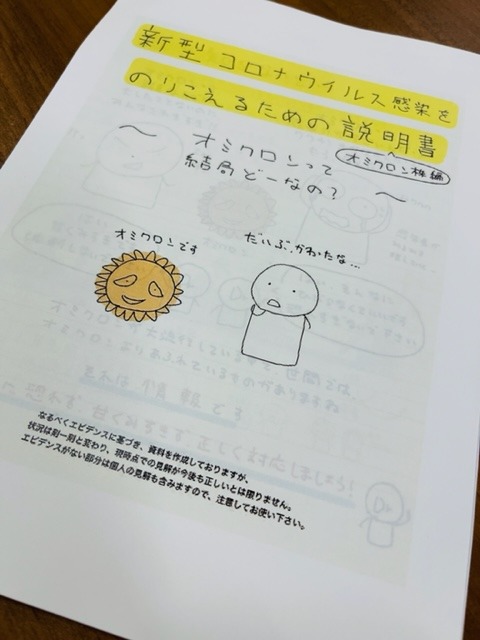 新型コロナウイルス感染を
のりこえるための説明書
オミクロン株編
〜オミクロンって
結局どーなの？〜
オミクロンです
だいぶ、かわたな...
なるべくエビデンスに基づき、資料を作成しておりますが、
状況は刻一刻と変わり、現時点での見解が今後も正しいとは限りません。
エビデンスがない部分は個人の見解も含みますので、注意してお使い下さい。